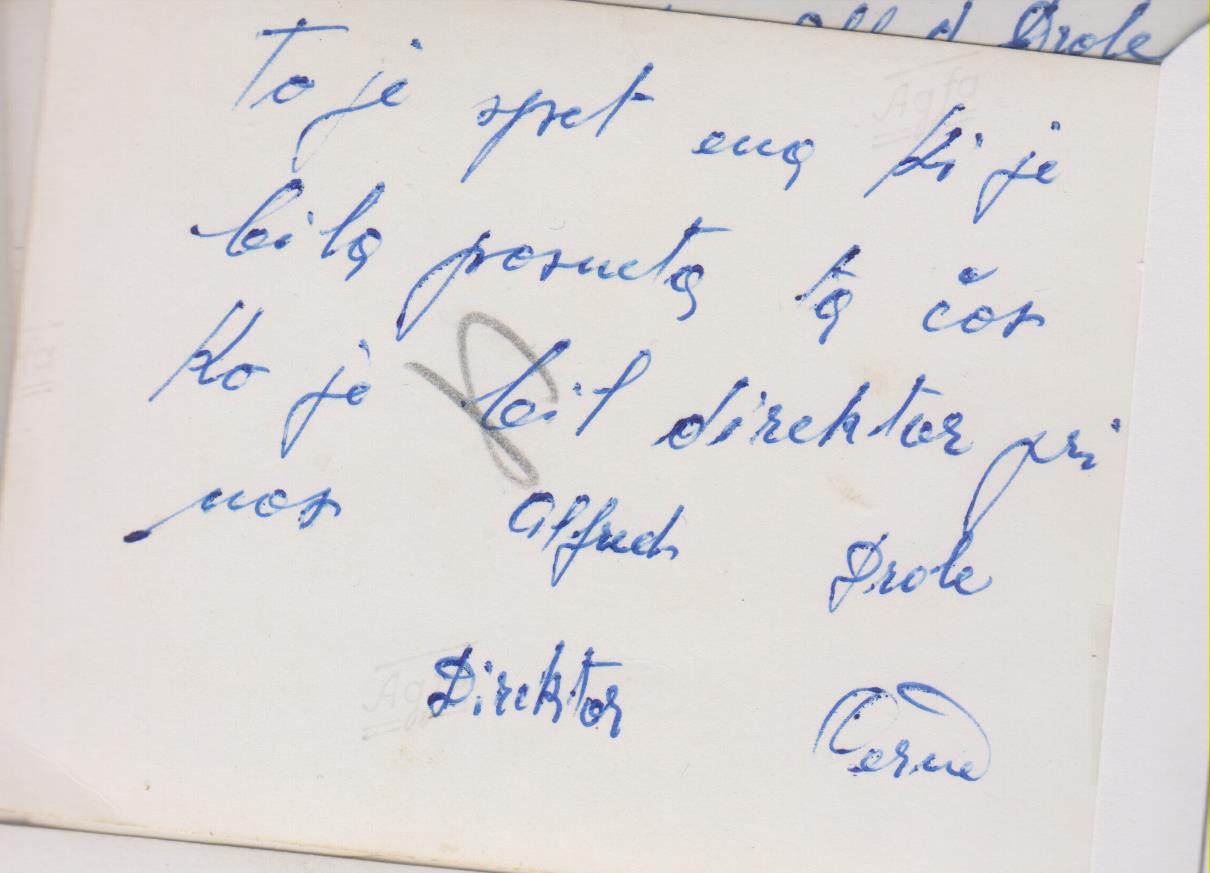 Drole
To je spet ena ki je
bila posneta ta čas
ko je bil direktor pri
nas Alfred Drole
Direktor Černe
Agfa